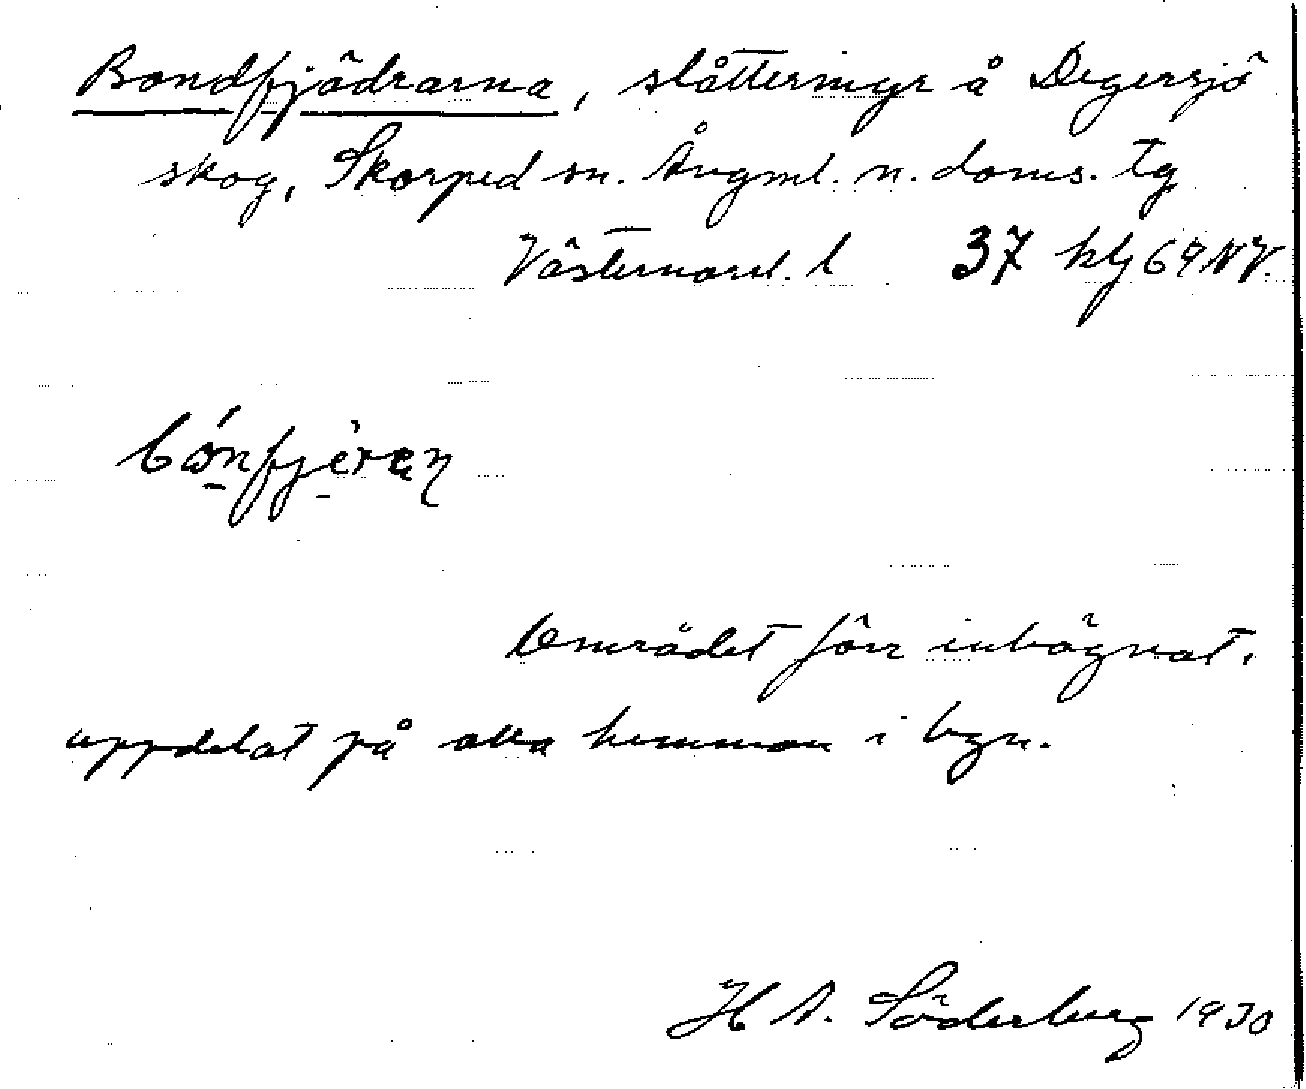 Bondfjädrarna, slåttermyr å Degersjö
skog, Skorped sn. Ångml. n. doms. tg
Västernorrl. l 37 hlj 69 NV.
bónfjèren
Området förr inhägnat.
uppdelat på alla hemman i byn.
H A. Söderberg 1930